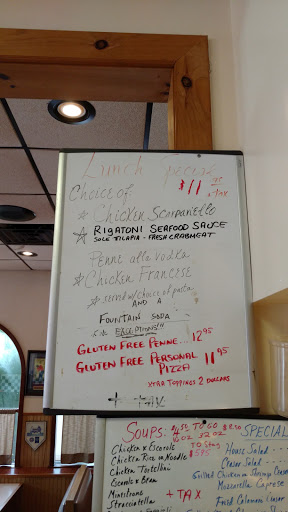 Lunch Special
$11.95
+ Tax
Choice of
☆ Chicken Scarpariello
☆ RIGATONI SEAFOOD SAUCE
SOLE TILAPIA - FRESH CRABMEAT
Penne alla vodka
☆ Chicken Francese
☆ served w/choice of pasta
AND A
FOUNTAIN SODA
EXCEPTIONS!!
GLUTEN FREE PENNE... 12.95
GLUTEN FREE PERSONAL 11.95
PIZZA
XTRA TOPPINGS 2 DOLLARS
+ TAX
SOUPS: TO GO
16 OZ 32 OZ
Chicken & Escarole TO Stay
Chicken Rice or Noodle $5.95
Chicken Tortellini
Escarole & Bean
Minestrone + TAX
Stracciatella
SPECIAL
House Salad
Caesar Salad
Grilled Chicken or Shrimp Caesar
Mozzarella Caprese